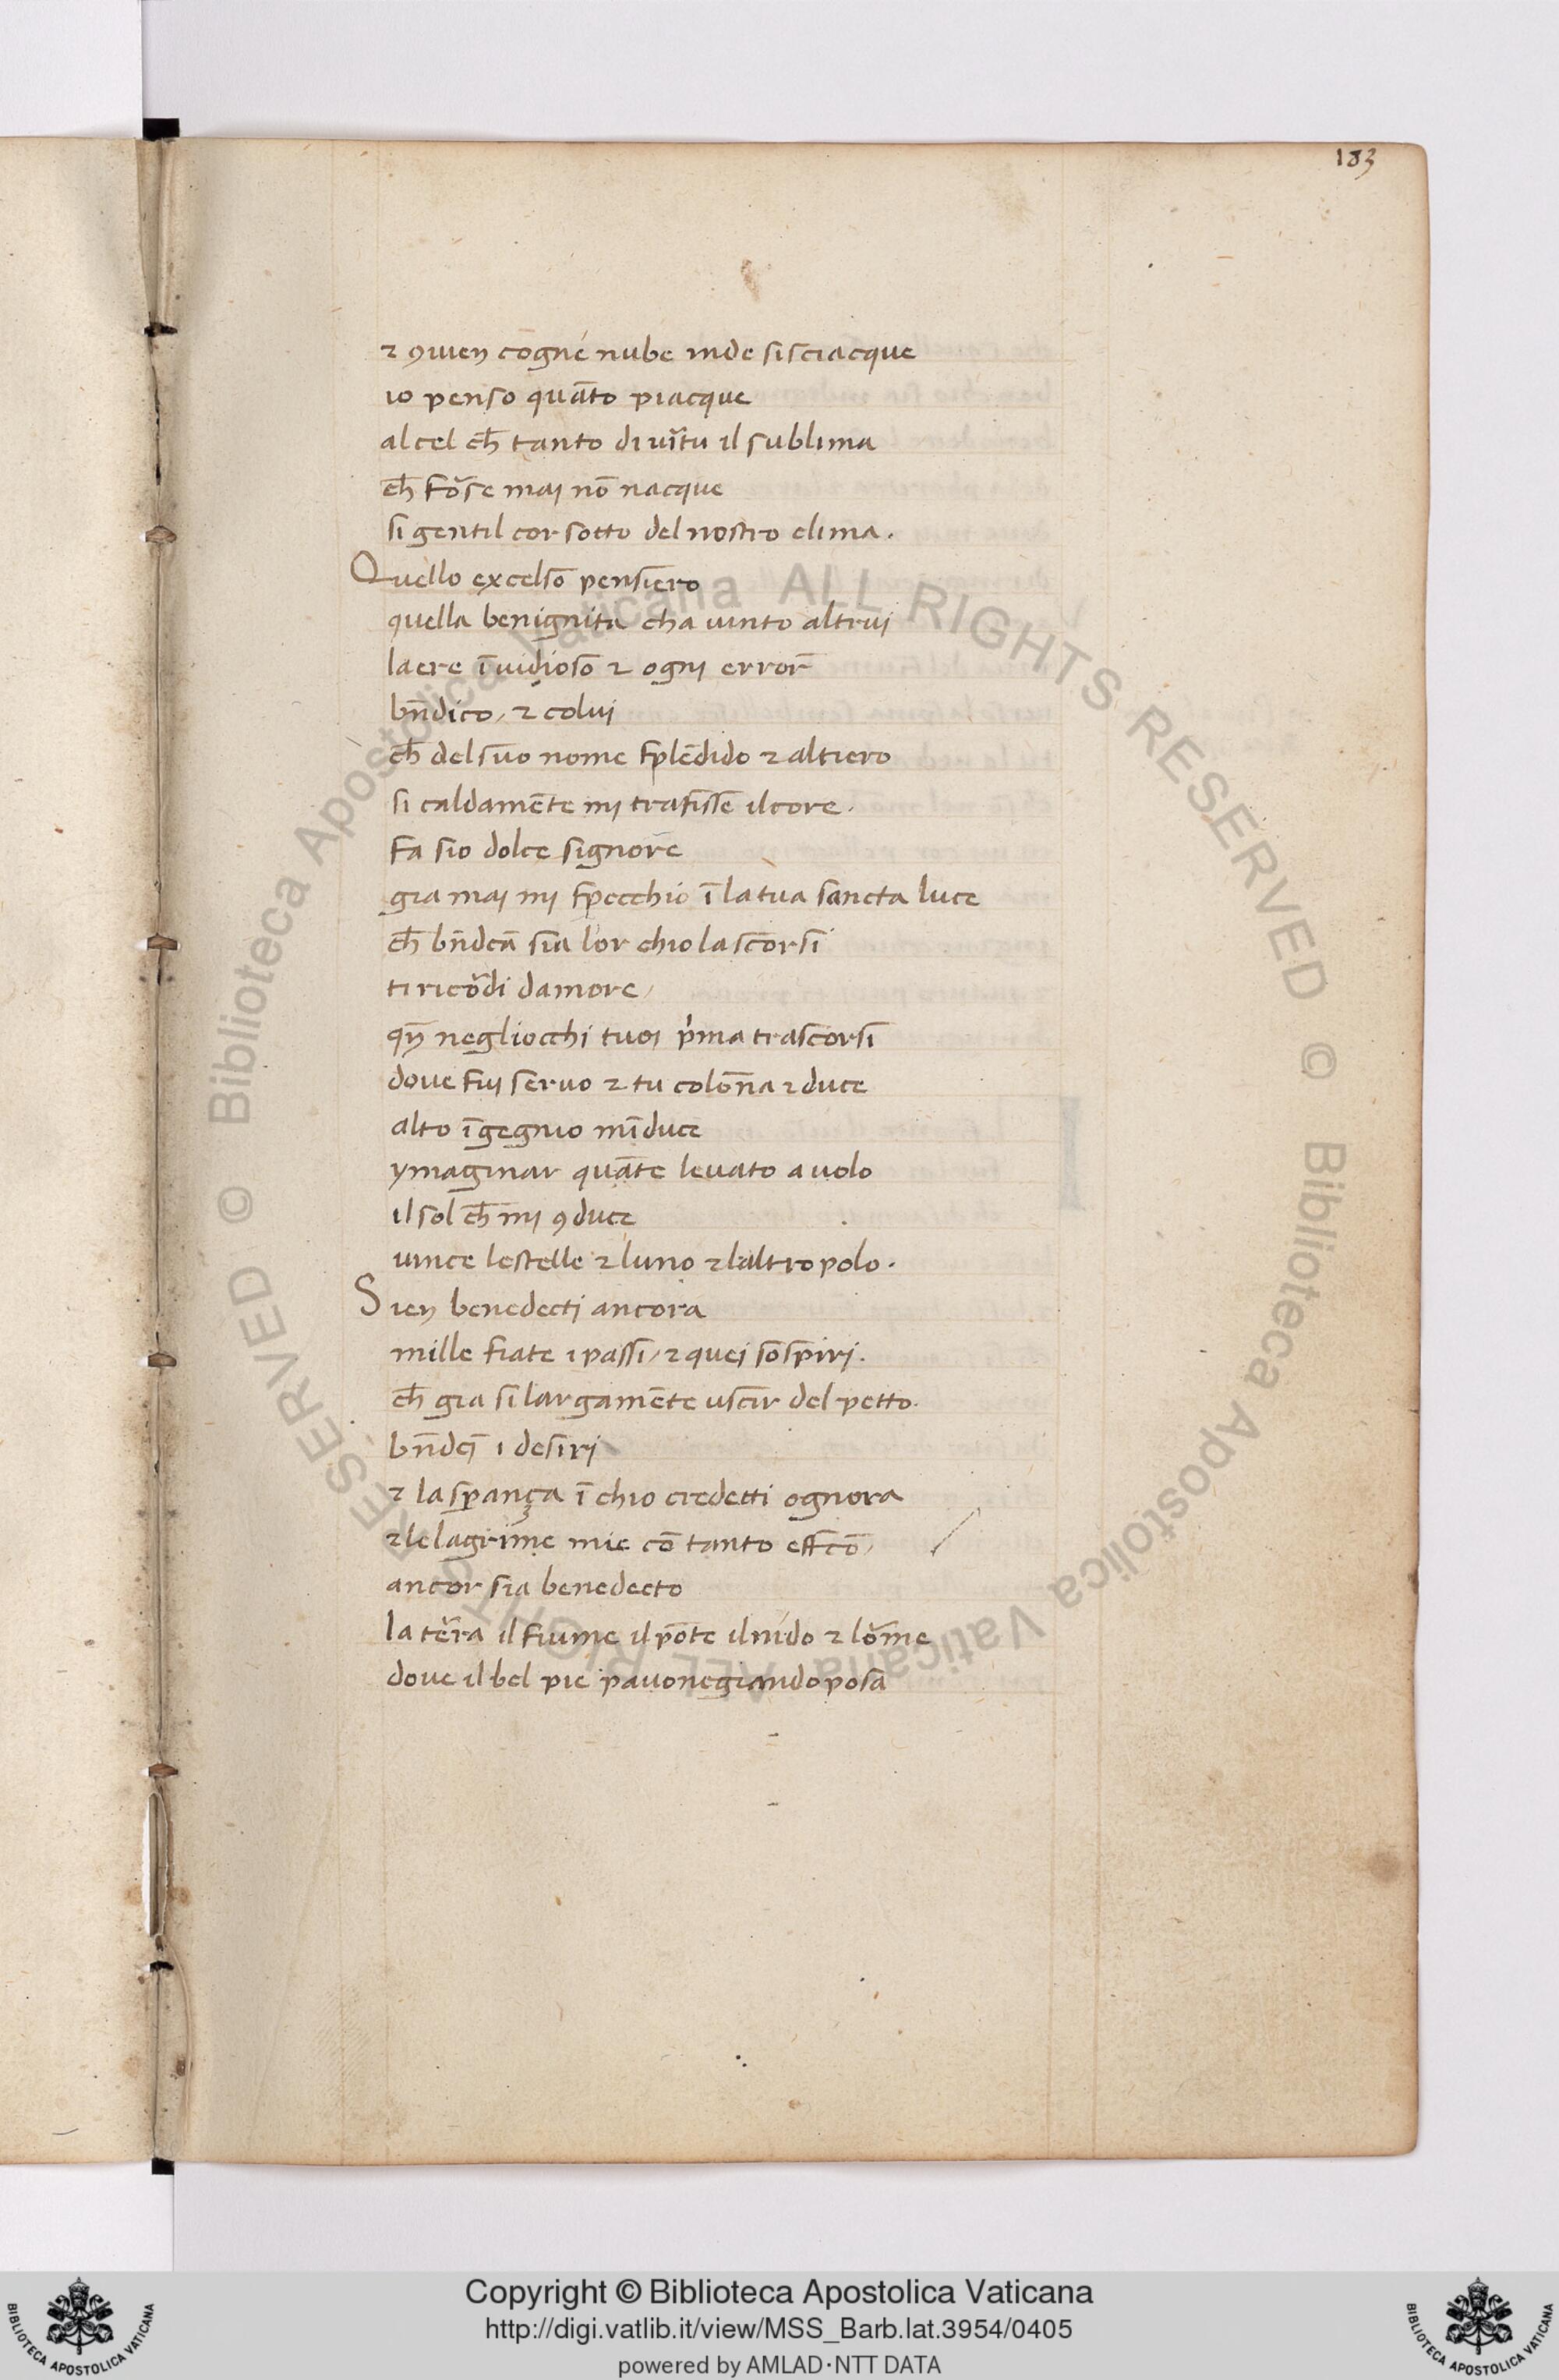 183
⁊ ꝯuien cogne nube inde sisciacque
io penso quāto piacque
al cel ch̄ tanto di uir̄tu il sublima
ch̄ for̄se mai nō nacque
si gentil cor sotto del nostro clima.
Quello excelso pensiero
quella benignita cha uinto altrui
laere īuidioso ⁊ ogni error̄
bn̄dico, ⁊ colui
ch̄ del suo nome splēdido ⁊ altiero
si caldamēte mi trafisse il core.
Fa sio dolce signore
gia mai mi specchio ī la tua sancta luce
ch̄ bn̄dcā sia lor chio la scorsi
ti ricor̄di damore,
qn̄ negliocchi tuoi pima trascorsi
doue fui seruo ⁊ tu colōna ⁊ duce
alto īgegnio mīduce
ymaginar quāte leuato a uolo
il sol ch̄ mi ꝯduce
uince le stelle ⁊ luno ⁊ laltro polo.
Sien benedecti ancora
mille fiate i passi, ⁊ quei sospiri.
ch̄ gia si largamēte uscir del petto.
bn̄dcī i desiri
⁊ la spança ī chio credetti ognora
⁊ le lagrime mie cō tanto effcō,
ancor sia benedecto
la ter̄ra il fiume il pōte il nido ⁊ lor̄me
doue il bel pie pauonegiando posa
© Biblioteca Apostolica Vaticana ALL RIGHTS RESERVED © Biblioteca Apostolica Vaticana ALL RIGHTS RESERVED
Copyright © Biblioteca Apostolica Vaticana
http://digi.vatlib.it/view/MSS_Barb.lat.3954/0405
powered by AMLAD·NTT DATA
BIBLIOTECA APOSTOLICA VATICANA
BIBLIOTECA APOSTOLICA VATICANA